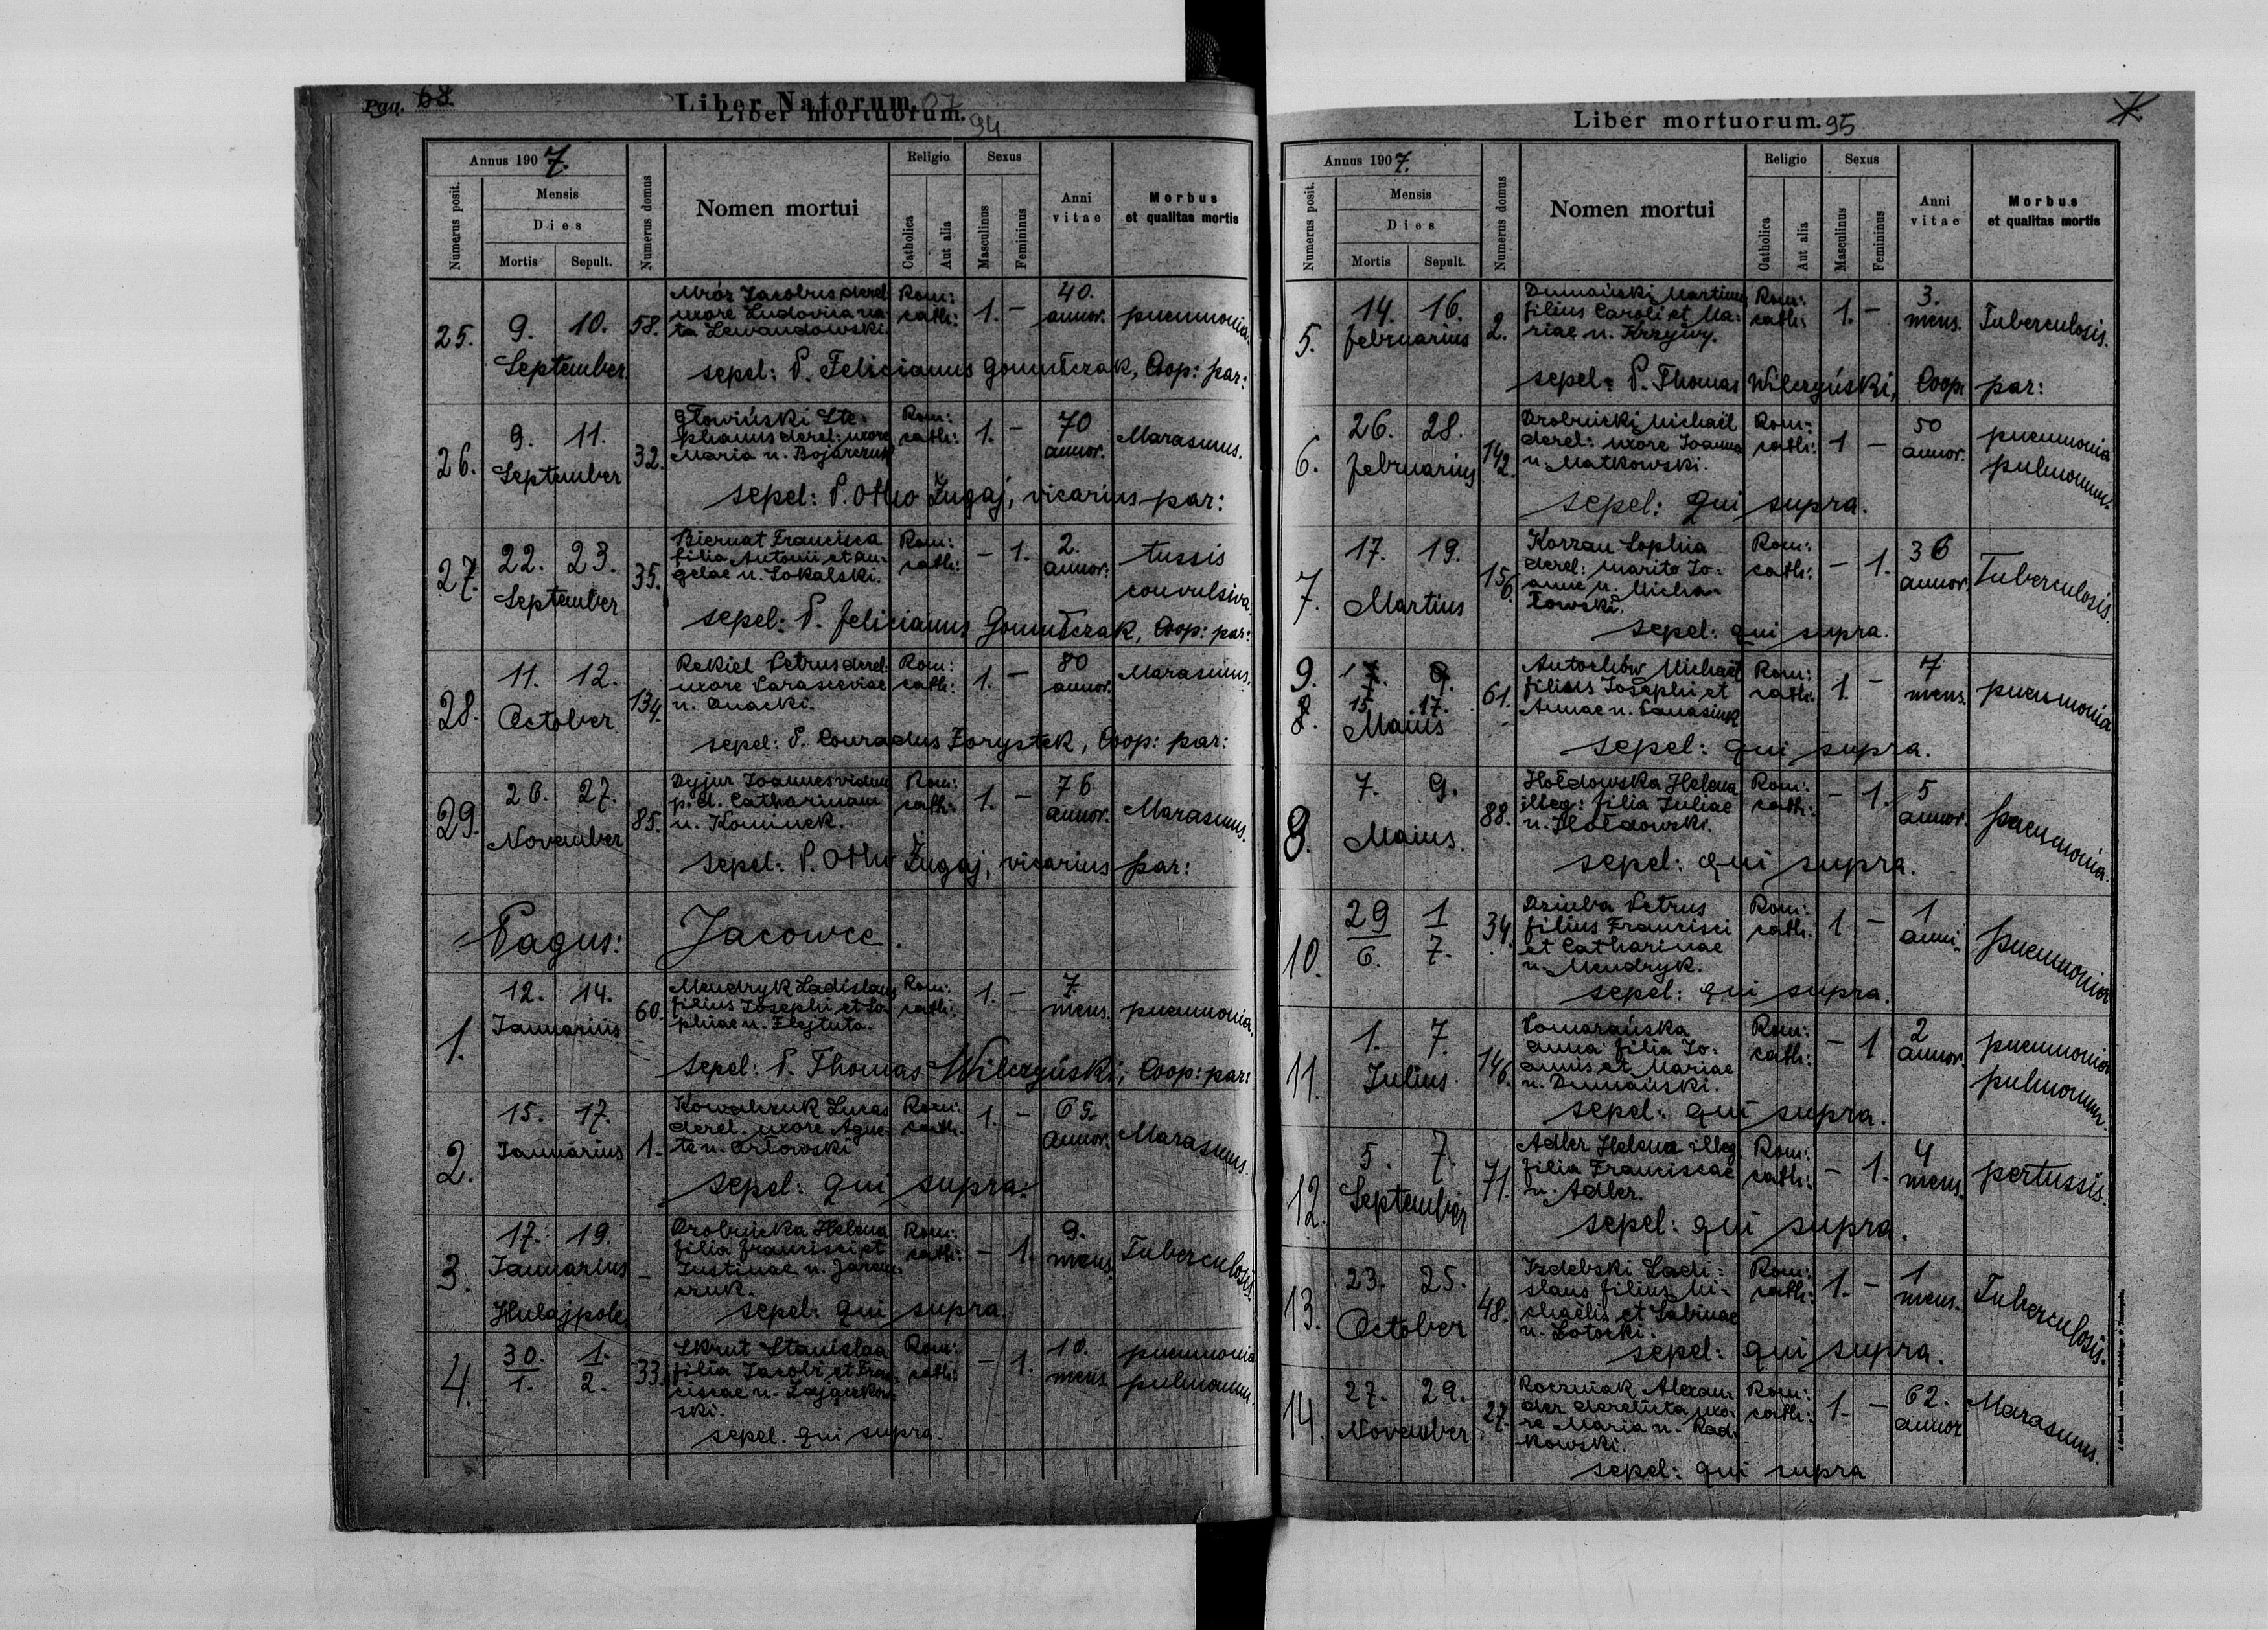 Pag. 68
Liber Natorum. 07
Liber mortuorum. 94
Annus 1907.
Numerus posit.
Mensis
Dies
Mortis
Sepult.
Numerus domus
Nomen mortui
Religio
Catholica
Aut alia
Sexus
Masculinus
Femininus
Anni vitae
Morbus et qualitas mortis
25. 9. 10. September 58.
Mróz Jacobus derel:
uxore Ludovica na-
ta Lewandowski.
Rom: cath: 1. – 40. annor. pneumonia.
sepel: P. Felicianus Gomułczak, Coop: par:
26. 9. 11. September 32.
Głowiński Ste-
phanus derel: uxore
Maria n. Bojarczuk
Rom: cath: 1. – 70 annor. Marasmus.
sepel: P. Otho Żugaj, vicarius par:
27. 22. 23. September 35.
Biernat Francisca
filia Antonii et An-
gelae n. Sokalski.
Rom: cath: – 1. 2. annor: tussis convulsiva.
sepel: P. Felicianus Gomułczak, Coop: par:
28. 11. 12. October 134.
Rekiel Petrus derel:
uxore Parasceviae
n. Onacki.
Rom: cath: 1. – 80 annor. Marasmus.
sepel: P. Conradus Forystek, Coop: par:
29. 26. 27. November 85.
Dyjur Joannes viduus
p. d. Catharinam
n. Kominek.
Rom: cath: 1. – 76 annor. Marasmus.
sepel: P. Otho Żugaj, vicarius par:
Pagus: Jacowce.
1. 12. 14. Januarius 60.
Mendryk Ladislaus
filius Josephi et So-
phiae n. Flejtuta.
Rom: cath: 1. – 7. mens. pneumonia.
sepel: P. Thomas Wilczyński, Coop: par:
2. 15. 17. Januarius 1.
Kowalczuk Lucas
derel. uxore Agne-
te n. Orłowski
Rom: cath: 1. – 65. annor. Marasmus.
sepel: qui supra:
3. 17. 19. Januarius – Hulajpole
Drobnicka Helena
filia Francisci et
Justinae n. Jarem-
czuk.
Rom: cath: – 1. 9. mens. Tuberculosis.
sepel: qui supra
4. 30./1. 1./2. 33.
Skrut Stanislaa
filia Jacobi et Fran-
ciscae n. Zajączkow-
ski.
Rom: cath: – 1. 10. mens. pneumonia pulmonum.
sepel. qui supra.
Liber mortuorum. 95
7.
Annus 1907.
Numerus posit.
Mensis
Dies
Mortis
Sepult.
Numerus domus
Nomen mortui
Religio
Catholica
Aut alia
Sexus
Masculinus
Femininus
Anni vitae
Morbus et qualitas mortis
5. 14. 16. februarius 2.
Dumański Martinus
filius Caroli et Ma-
riae n. Krzywy.
Rom: cath: 1. – 3. mens. Tuberculosis.
sepel: P. Thomas Wilczyński, Coop. par:
6. 26. 28. februarius 142.
Drobnicki Michaël
derel: uxore Joanna
n. Matkowski.
Rom: cath: 1 – 50 annor. pneumonia pulmonum.
sepel: qui supra.
7. 17. 19. Martius 156.
Korzan Sophia
derel: marito Jo-
anne n. Micha-
łowski.
Rom: cath: – 1. 36 annor. Tuberculosis.
sepel: qui supra.
9. 17. 9.
8. 15. 17. Maius 61.
Antochów Michaël
filius Josephi et
Annae n. Panasiuk
Rom: cath: 1. – 7 mens. pneumonia
sepel: qui supra.
8. 7. 9. Maius. 88.
Hołdowska Helena
illeg: filia Juliae
n. Hołdowski.
Rom: cath: – 1. 5 annor. pneumonia.
sepel: qui supra.
10. 29/6. 1/7. 34.
Dziuba Petrus
filius Francisci
et Catharinae
n. Mendryk.
Rom: cath. 1 – 1 anni. pneumonia
sepel: qui supra.
11. 1. 7. Julius 146.
Pomarańska
Anna filia Jo-
annis et Mariae
n. Dumański.
Rom: cath: – 1 2 annor. pneumonia pulmonum.
sepel: qui supra.
12. 5. 7. September 71.
Adler Helena illeg.
filia Franciscae
n. Adler.
Rom: cath: – 1. 4 mens. pertussis.
sepel: qui supra.
13. 23. 25. October 48.
Izdebski Ladi-
slaus filius Mi-
chaëlis et Sabinae
n. Sotocki.
Rom: cath: 1. – 1 mens. Tuberculosis.
sepel: qui supra.
14. 27. 29. November 27.
Roczniak Alexan-
der derelicta uxo-
re Maria n. Rad-
kowski.
Rom: cath: 1. – 62. annor Marasmus.
sepel: qui supra